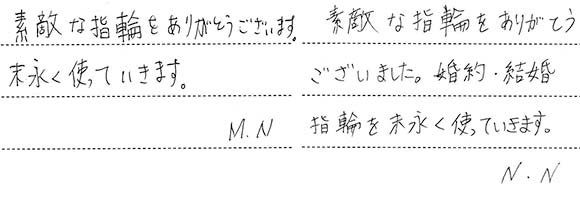 素敵な指輪をありがとうございます。
末永く使っていきます。
M.N
素敵な指輪をありがとう
ございました。婚約・結婚
指輪を末永く使っていきます。
N.N